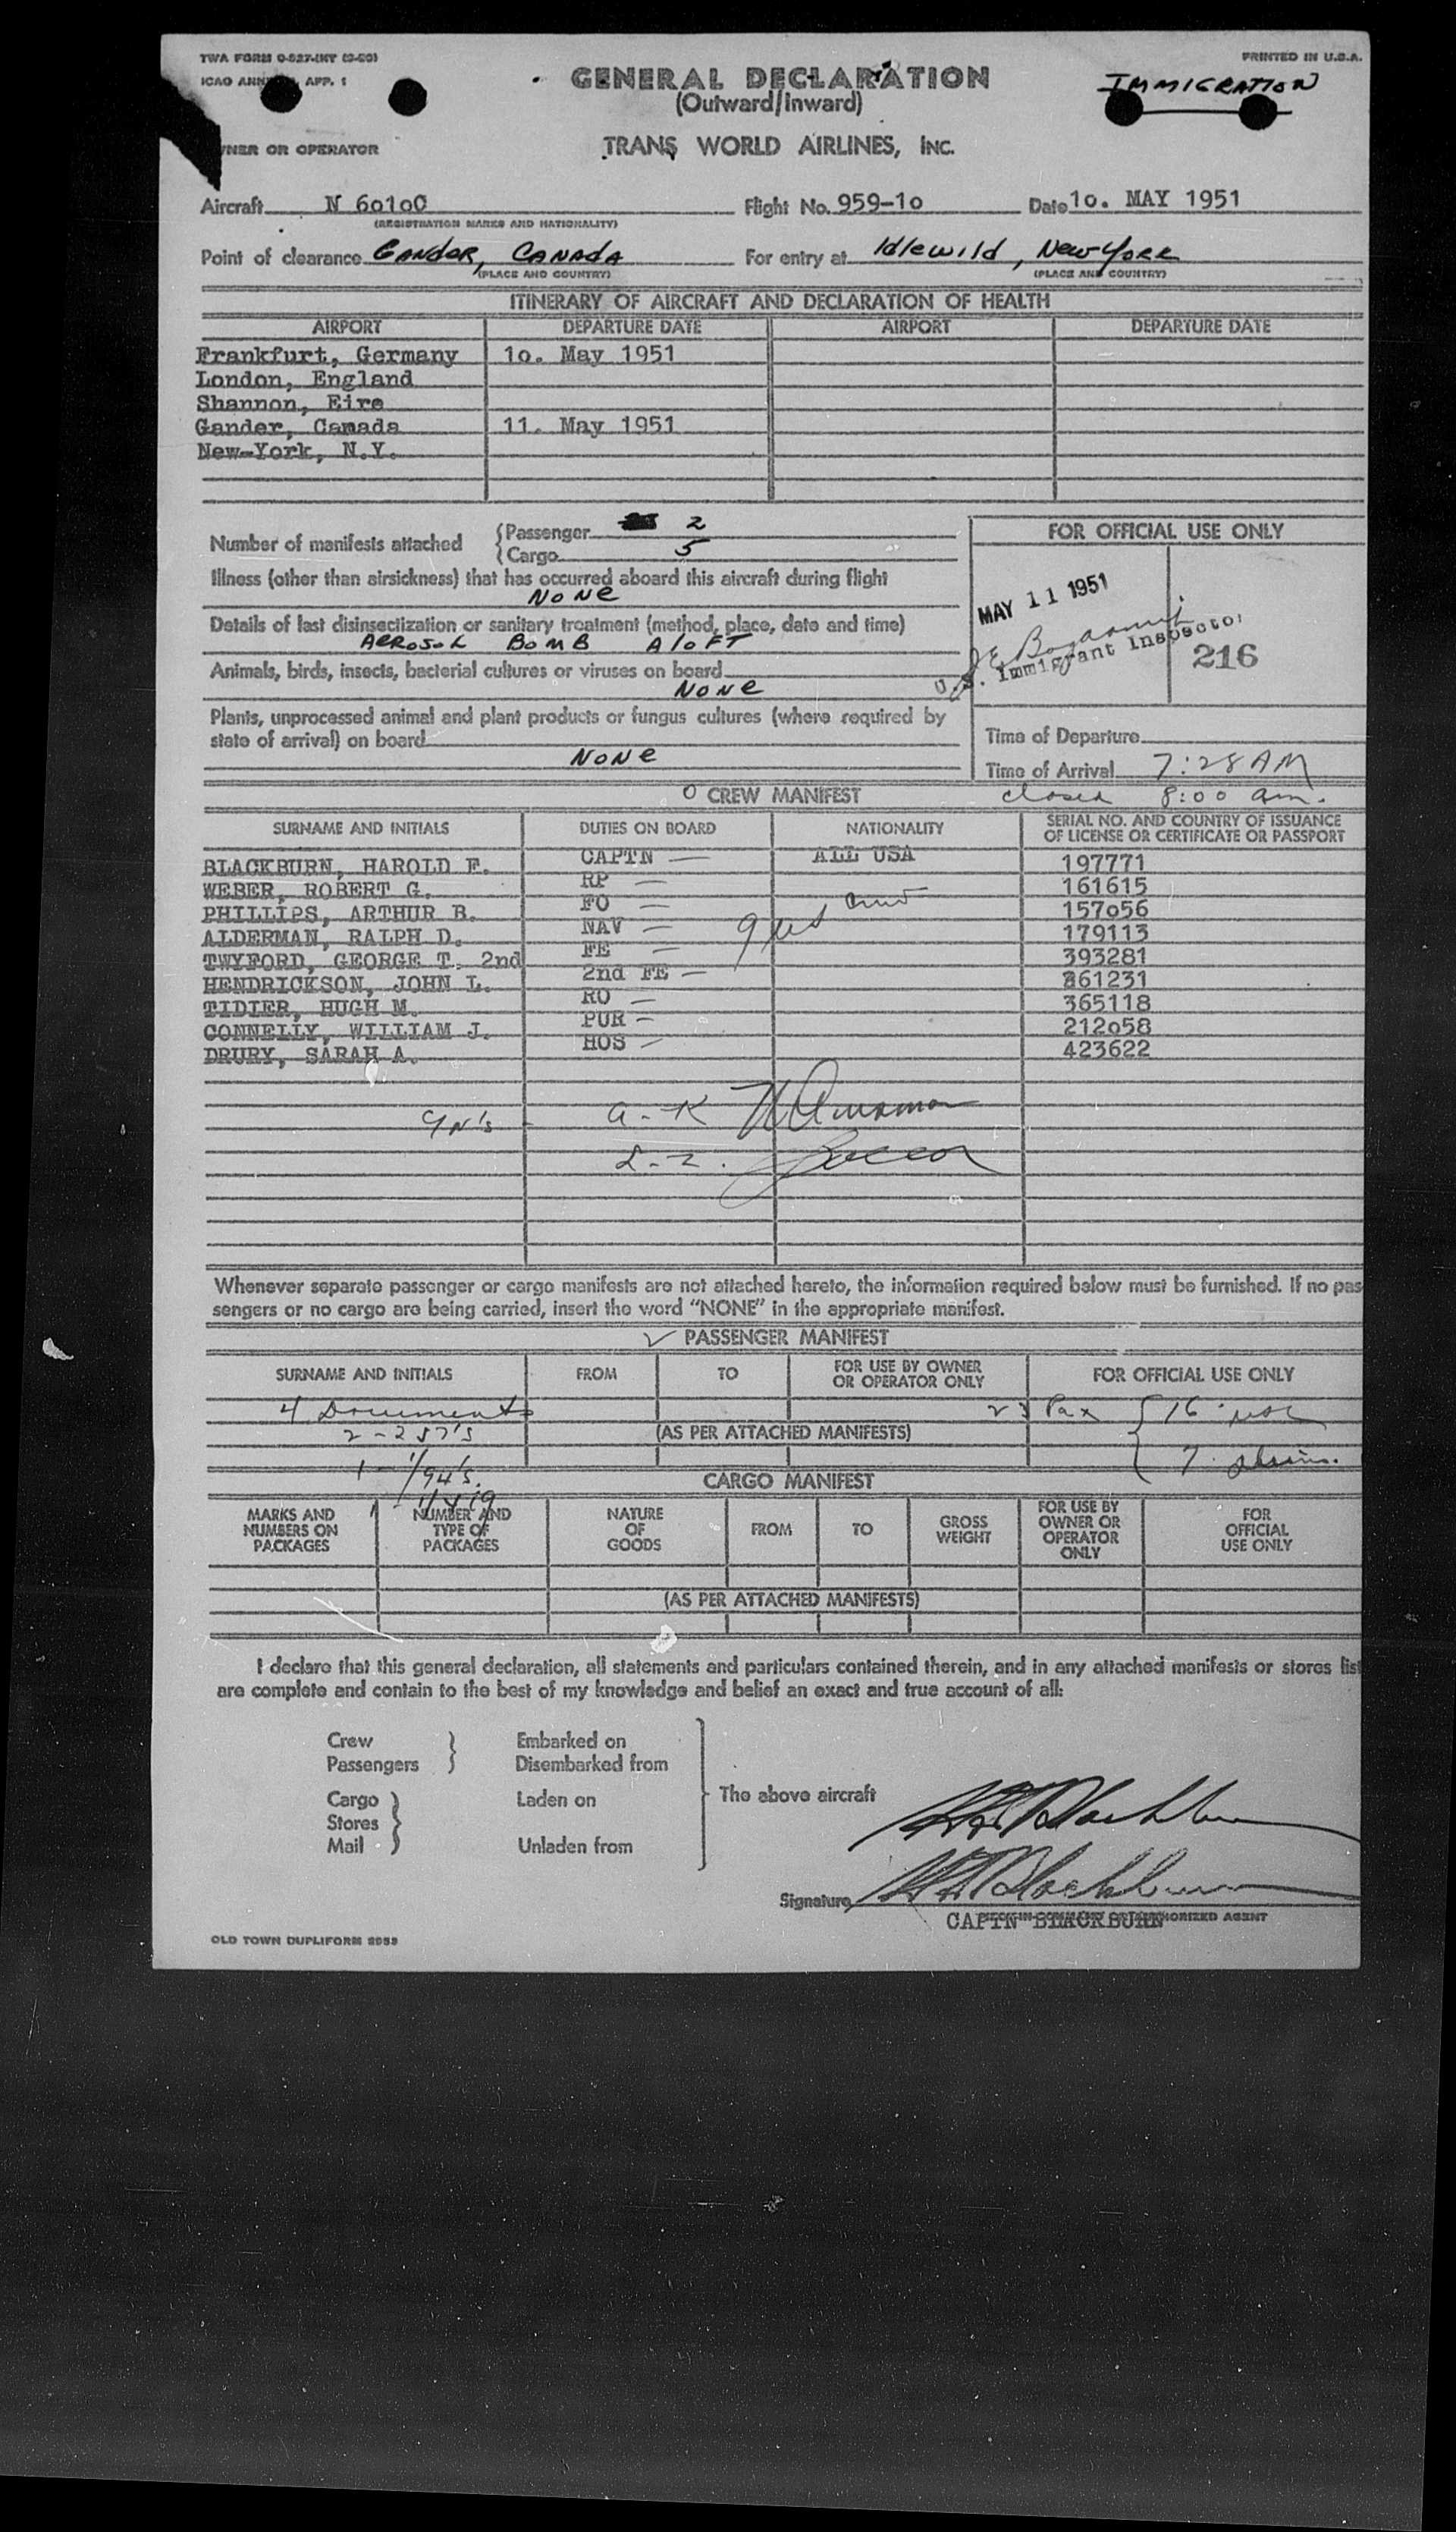 TWA FORM O-527-INT (3-50)
PRINTED IN U.S.A.
ICAO ANNEX APP. 1
GENERAL DECLARATION
IMMIGRATION
(Outward/Inward)
OWNER OR OPERATOR
TRANS WORLD AIRLINES, INC.
Aircraft N 6010C Flight No. 959-10 Date 10. MAY 1951
(REGISTRATION MARKS AND NATIONALITY)
Point of clearance GANDER, CANADA For entry at Idlewild, New York
(PLACE AND COUNTRY) (PLACE AND COUNTRY)
ITINERARY OF AIRCRAFT AND DECLARATION OF HEALTH
AIRPORT DEPARTURE DATE AIRPORT DEPARTURE DATE
Frankfurt, Germany 10. May 1951
London, England
Shannon, Eire
Gander, Canada 11. May 1951
New-York, N.Y.
Number of manifests attached
Passenger 2
Cargo 5
FOR OFFICIAL USE ONLY
Illness (other than airsickness) that has occurred aboard this aircraft during flight
NONE
MAY 11 1951
Details of last disinsectization or sanitary treatment (method, place, date and time)
AEROSOL BOMB ALOFT
U.S. Immigrant Inspector
216
Animals, birds, insects, bacterial cultures or viruses on board
NONE
Plants, unprocessed animal and plant products or fungus cultures (where required by
state of arrival) on board
NONE
Time of Departure
Time of Arrival 7:28 AM
closed 8:00 am.
O CREW MANIFEST
SURNAME AND INITIALS DUTIES ON BOARD NATIONALITY SERIAL NO. AND COUNTRY OF ISSUANCE OF LICENSE OR CERTIFICATE OR PASSPORT
BLACKBURN, HAROLD F. CAPTN — ALL USA 197771
WEBER, ROBERT G. RP — 161615
PHILLIPS, ARTHUR B. FO — 157056
ALDERMAN, RALPH D. NAV — 179113
TWYFORD, GEORGE T. 2nd FE — 393281
HENDRICKSON, JOHN L. 2nd FE — 861231
TIDIER, HUGH M. RO — 365118
CONNELLY, WILLIAM J. PUR — 212058
DRURY, SARAH A. HOS — 423622
a-K
L-Z.
Whenever separate passenger or cargo manifests are not attached hereto, the information required below must be furnished. If no pas
sengers or no cargo are being carried, insert the word "NONE" in the appropriate manifest.
PASSENGER MANIFEST
SURNAME AND INITIALS FROM TO FOR USE BY OWNER OR OPERATOR ONLY FOR OFFICIAL USE ONLY
4 Documents 23 Pax 16 usc
2-257's (AS PER ATTACHED MANIFESTS)
7 aliens.
1-I/94's.
CARGO MANIFEST
MARKS AND NUMBERS ON PACKAGES NUMBER AND TYPE OF PACKAGES NATURE OF GOODS FROM TO GROSS WEIGHT FOR USE BY OWNER OR OPERATOR ONLY FOR OFFICIAL USE ONLY
(AS PER ATTACHED MANIFESTS)
I declare that this general declaration, all statements and particulars contained therein, and in any attached manifests or stores list
are complete and contain to the best of my knowledge and belief an exact and true account of all:
Crew Embarked on
Passengers Disembarked from
The above aircraft
Cargo Laden on
Stores
Mail Unladen from
H F Blackburn
Signature H F Blackburn
CAPTN BLACKBURN
AUTHORIZED AGENT
OLD TOWN DUPLIFORM 2953